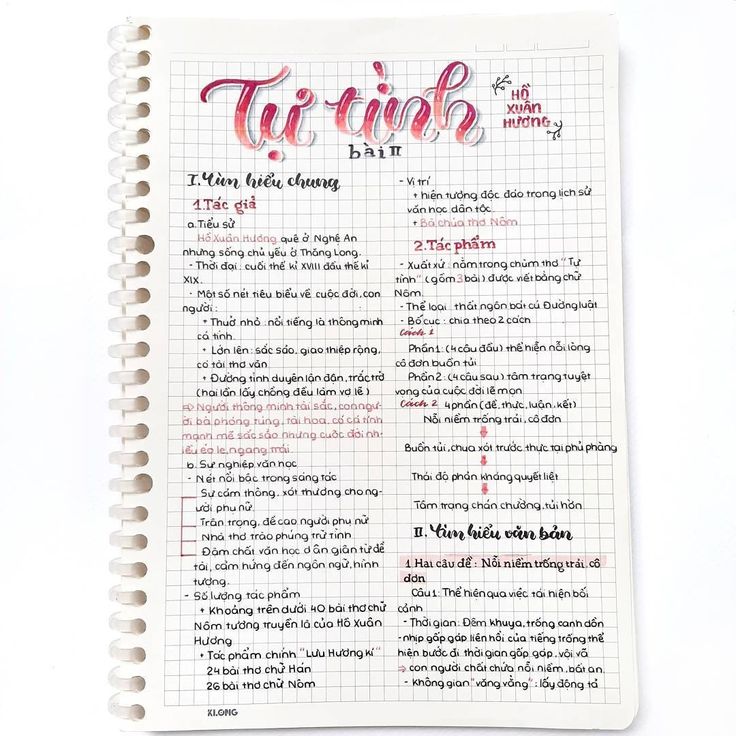 Tự tình
bài II
HỒ
XUÂN
HƯƠNG
I. Tìm hiểu chung
1. Tác giả
a. Tiểu sử
Hồ Xuân Hương quê ở Nghệ An
nhưng sống chủ yếu ở Thăng Long.
- Thời đại: cuối thế kỉ XVIII đầu thế kỉ
XIX.
- Một số nét tiêu biểu về cuộc đời, con
người:
+ Thuở nhỏ: nổi tiếng là thông minh
cá tính.
+ Lớn lên: sắc sảo, giao thiệp rộng,
có tài thơ văn
+ Đường tình duyên lận đận, trắc trở
(hai lần lấy chồng đều làm vợ lẽ)
⇒ Người thông minh tài sắc, con ngư-
ời bà phóng túng, tài hoa, có cá tính
mạnh mẽ sắc sảo nhưng cuộc đời nh-
iều éo le, ngang trái.
b. Sự nghiệp văn học
- Nét nổi bậc trong sáng tác
Sự cảm thông, xót thương cho ng-
ười phụ nữ.
Trân trọng, đề cao người phụ nữ
Nhà thơ trào phúng trữ tình
Đậm chất văn học dân gian từ đề
tài, cảm hứng đến ngôn ngữ, hình
tượng.
- Số lượng tác phẩm
+ Khoảng trên dưới 40 bài thơ chữ
Nôm tương truyền là của Hồ Xuân
Hương
+ Tác phẩm chính "Lưu Hương kí"
24 bài thơ chữ Hán
26 bài thơ chữ Nôm
- Vị trí
+ hiện tượng độc đáo trong lịch sử
văn học dân tộc.
+ Bà chúa thơ Nôm
2. Tác phẩm
- Xuất xứ: nằm trong chùm thơ "Tự
tình" (gồm 3 bài) được viết bằng chữ
Nôm
- Thể loại: thất ngôn bát cú Đường luật
- Bố cục: chia theo 2 cách
Cách 1
Phần 1: (4 câu đầu) thể hiện nỗi lòng
cô đơn buồn tủi
Phần 2: (4 câu sau) tâm trạng tuyệt
vọng của cuộc đời lẽ mọn
Cách 2 4 phần (đề, thực, luận, kết)
Nỗi niềm trống trải, cô đơn
Buồn tủi, chua xót trước thực tại phũ phàng
Thái độ phản kháng quyết liệt
Tâm trạng chán chường, tủi hờn
II. Tìm hiểu văn bản
1 Hai câu đề: Nỗi niềm trống trải, cô
đơn
Câu 1: Thể hiện qua việc tái hiện bối
cảnh
- Thời gian: Đêm khuya, trống canh dồn
-nhịp gấp gáp liên hồi của tiếng trống thể
hiện bước đi thời gian gấp gáp, vội vã
⇒ con người chất chứa nỗi niềm, bất an.
- Không gian "văng vẳng": lấy động tả
KLONG